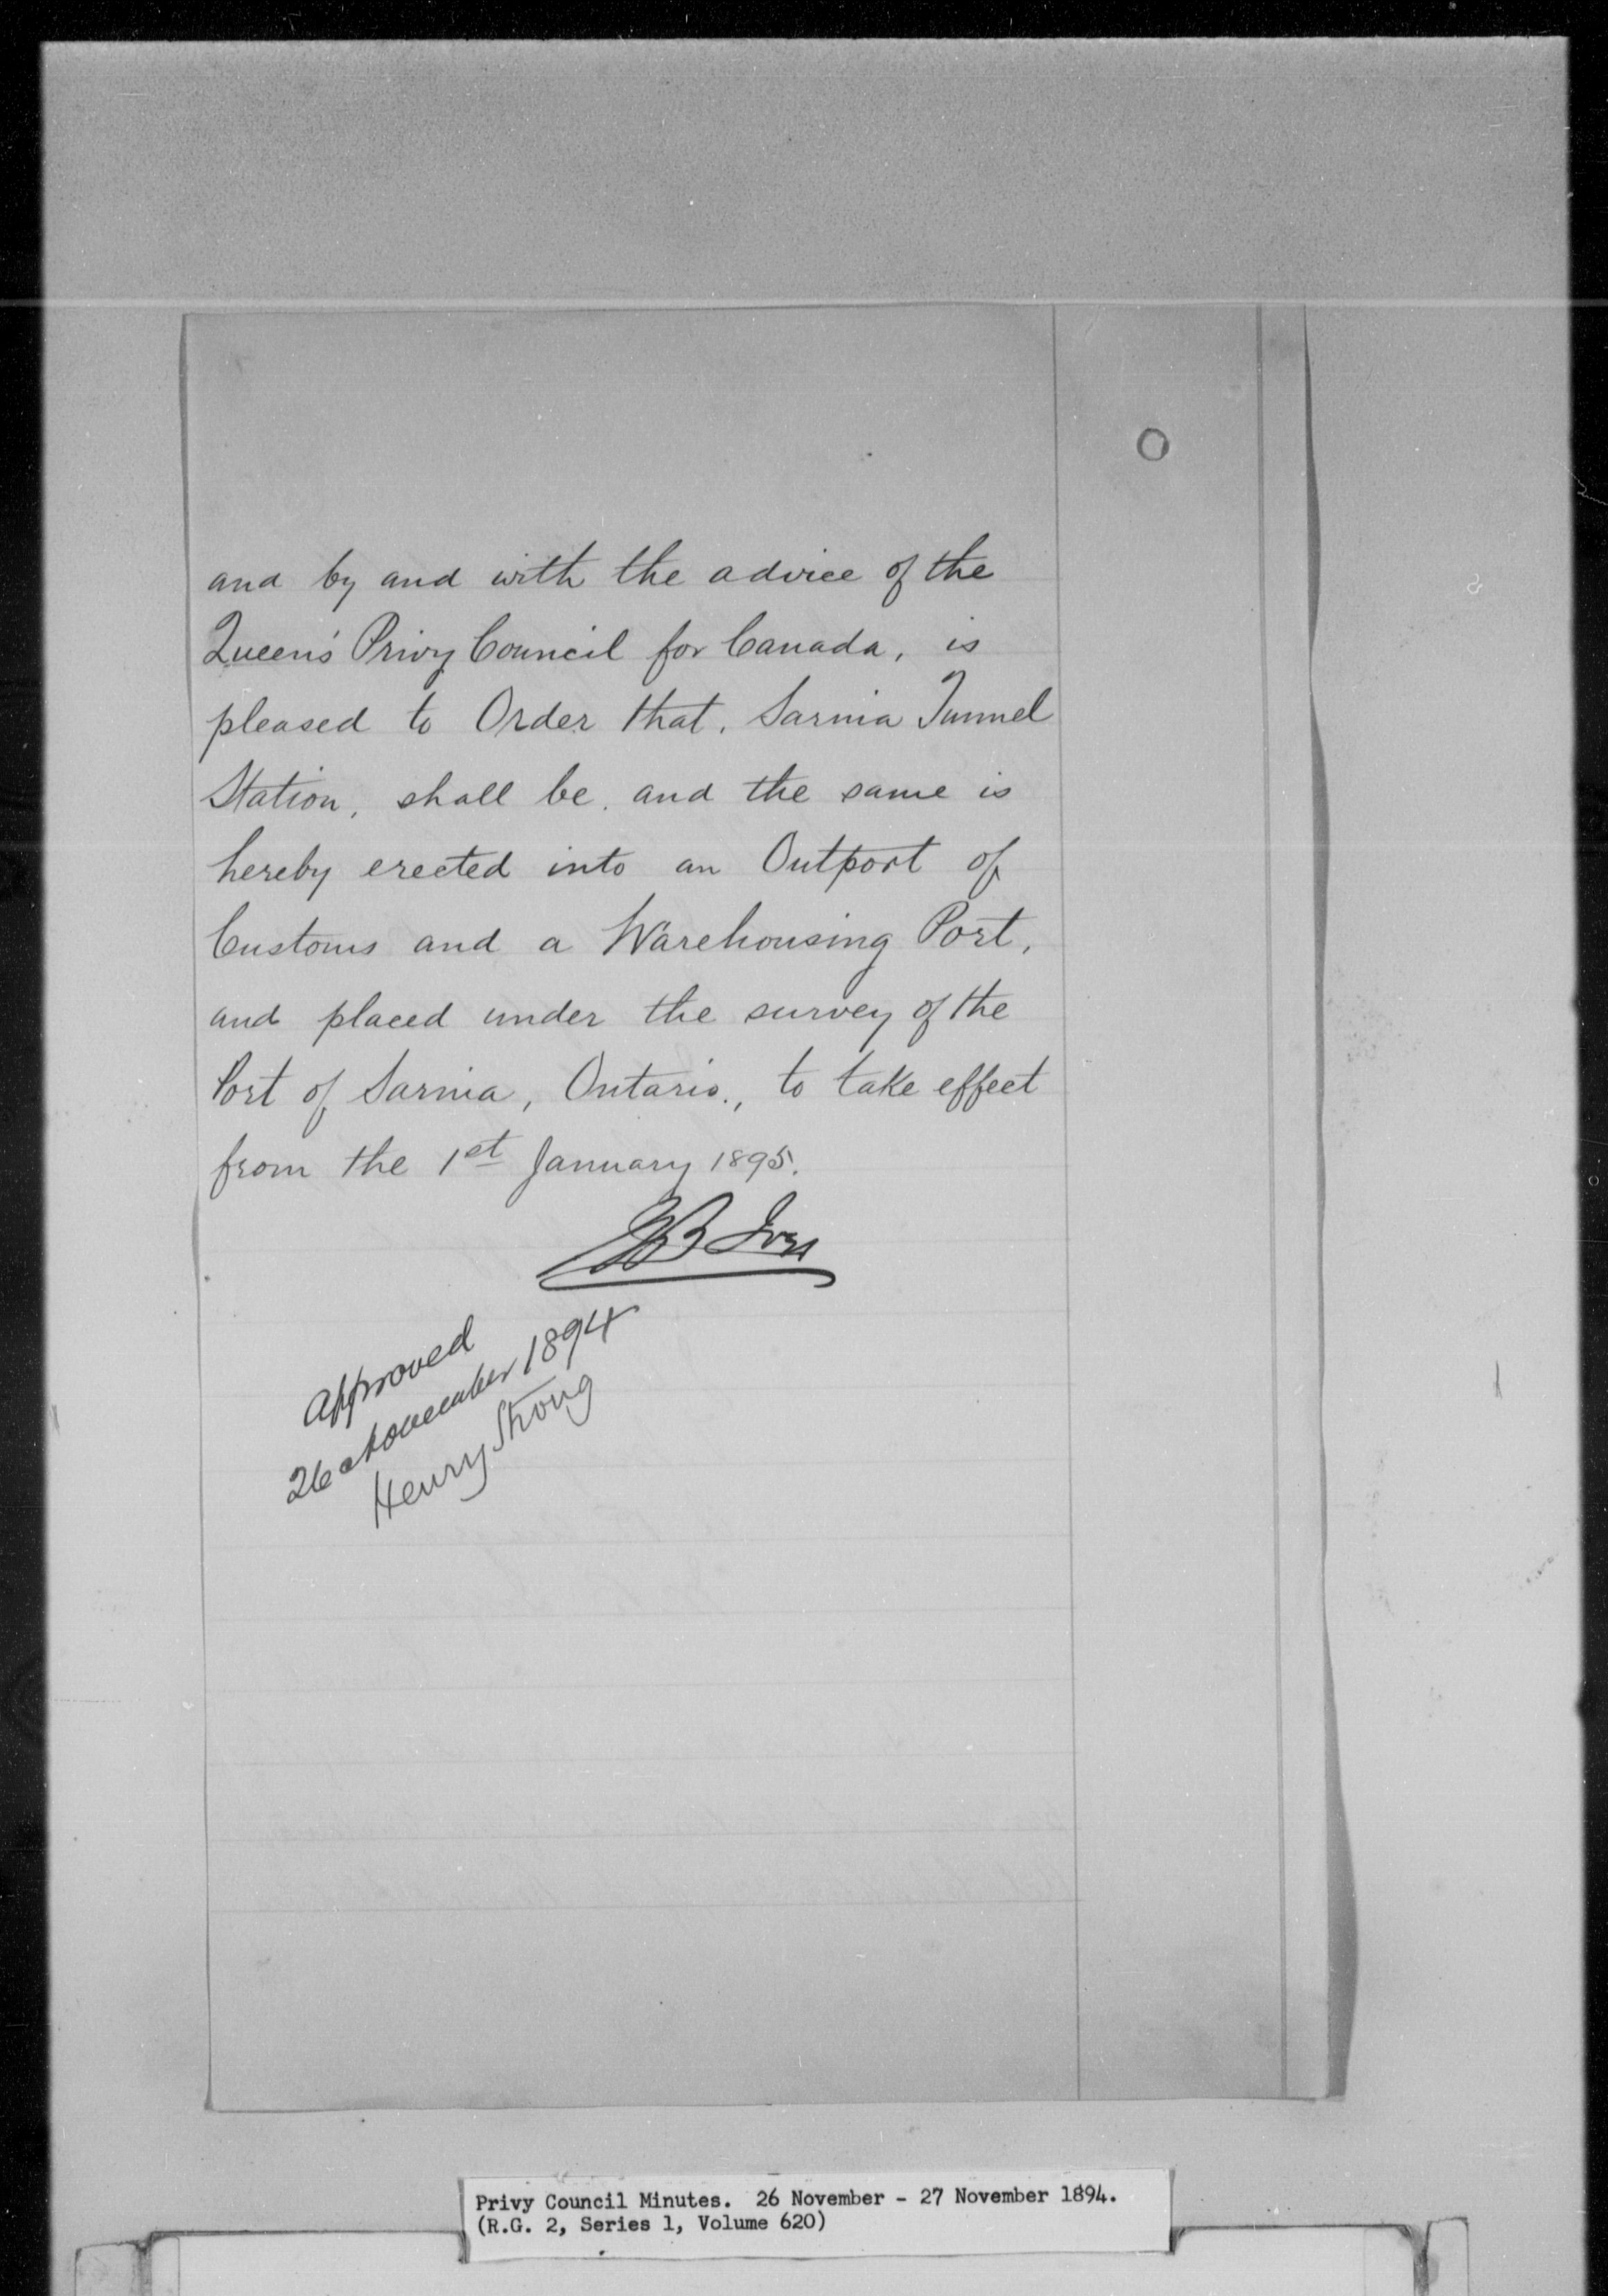 and by and with the advice of the
Queen's Privy Council for Canada, is
pleased to Order that, Sarnia Tunnel
Station, shall be, and the same is
hereby erected into an Outport of
Customs and a Warehousing Port,
and placed under the survey of the
Port of Sarnia, Ontario., to take effect
from the 1st January 1895.
WB Ives
Approved
26 November 1894
Henry Strong
Privy Council Minutes. 26 November - 27 November 1894.
(R.G. 2, Series 1, Volume 620)